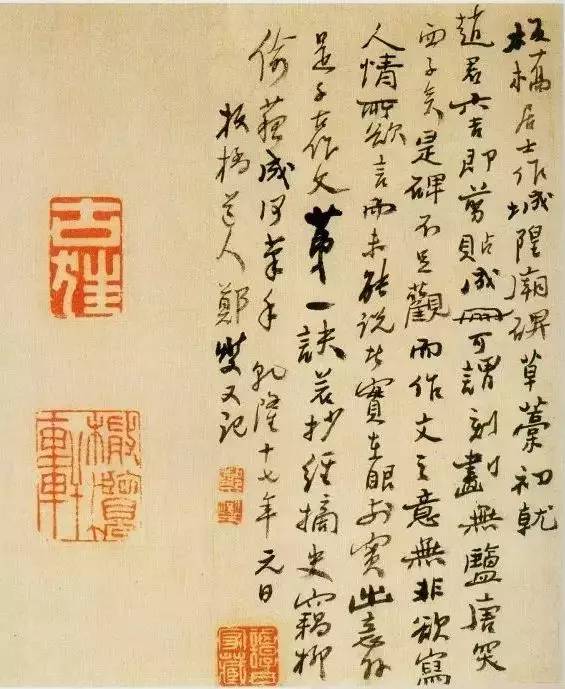 板橋居士作城隍廟碑草藁初就
趙君六吉即剪貼成冊可謂刻畫無鹽唐突
西子矣是碑不足觀而作文之意無非欲寫
人情所欲言而未能說者實在眼前實出意外
是千古作文第一訣若抄經摘史竊柳
偷蘇成何筆手乾隆十七年元日
板橋道人鄭燮又記
鄭燮